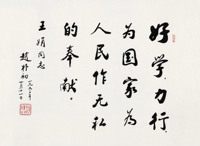 好学力行，
为国家为
人民作无私
的奉献。
王娟同志
赵朴初